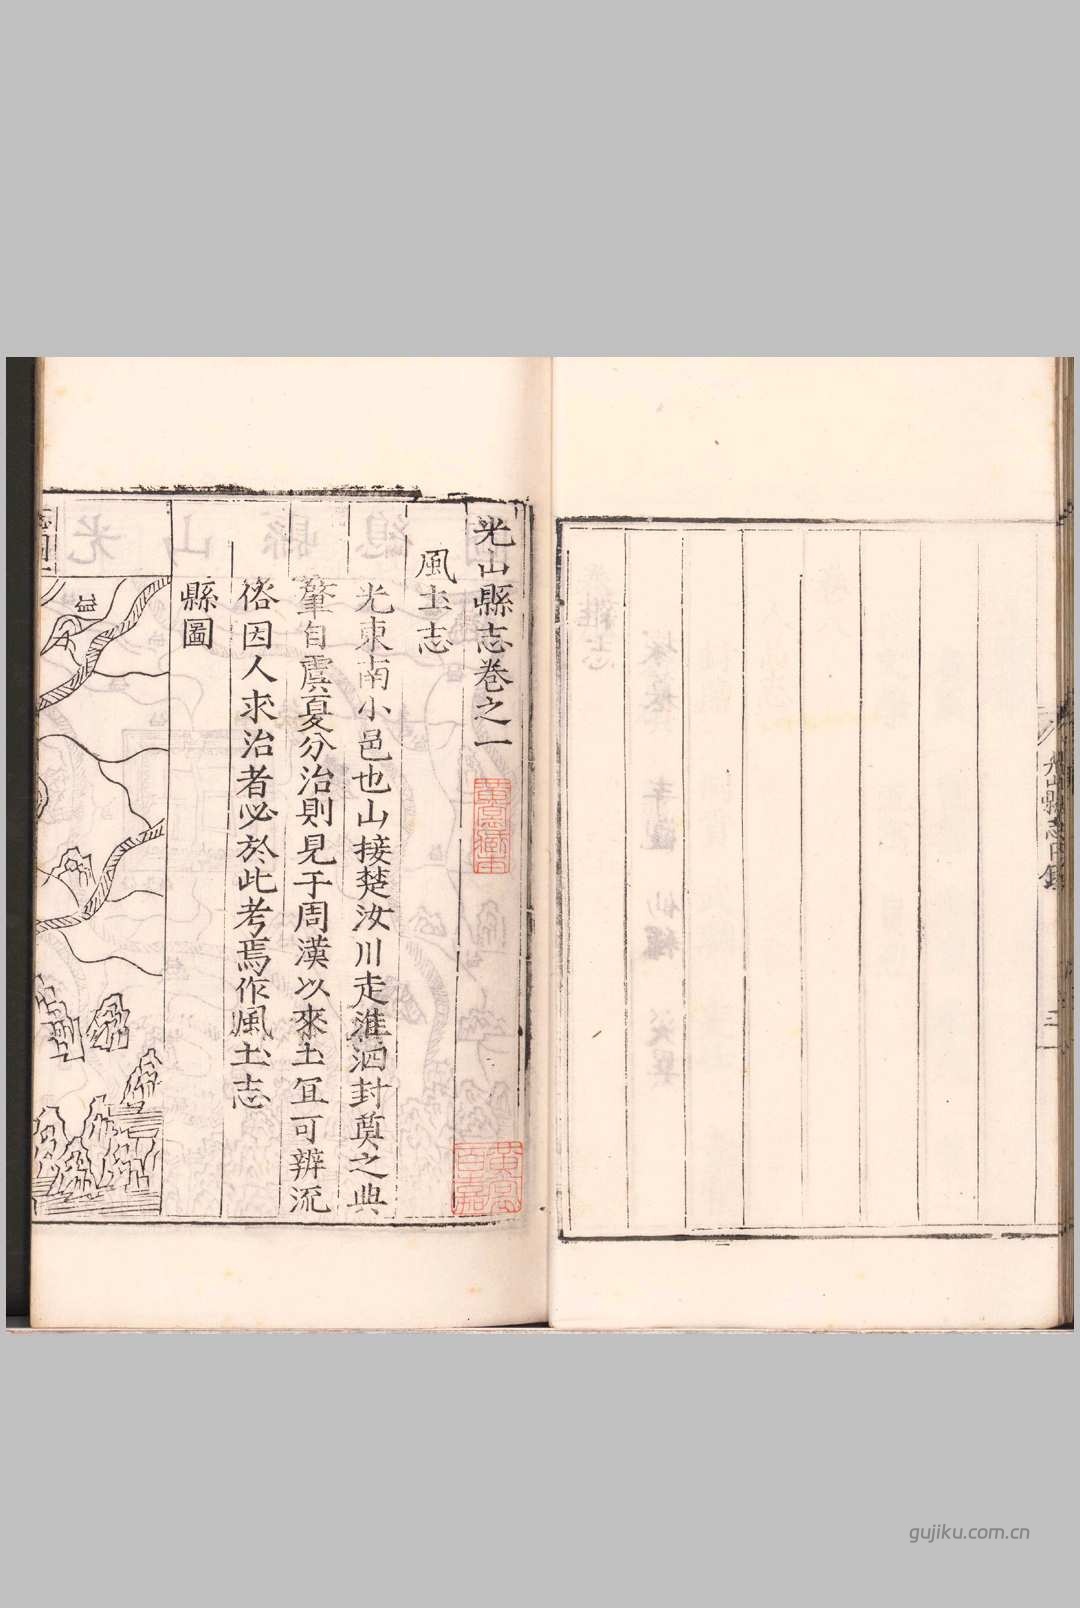 光山縣志目錄
三
光山縣志卷之一
風土志
光東南小邑也山接楚汝川走淮泗封奠之典
肇自虞夏分治則見于周漢以來土宜可辨流
俗因人求治者必於此考焉作風土志
縣圖
gujiku.com.cn